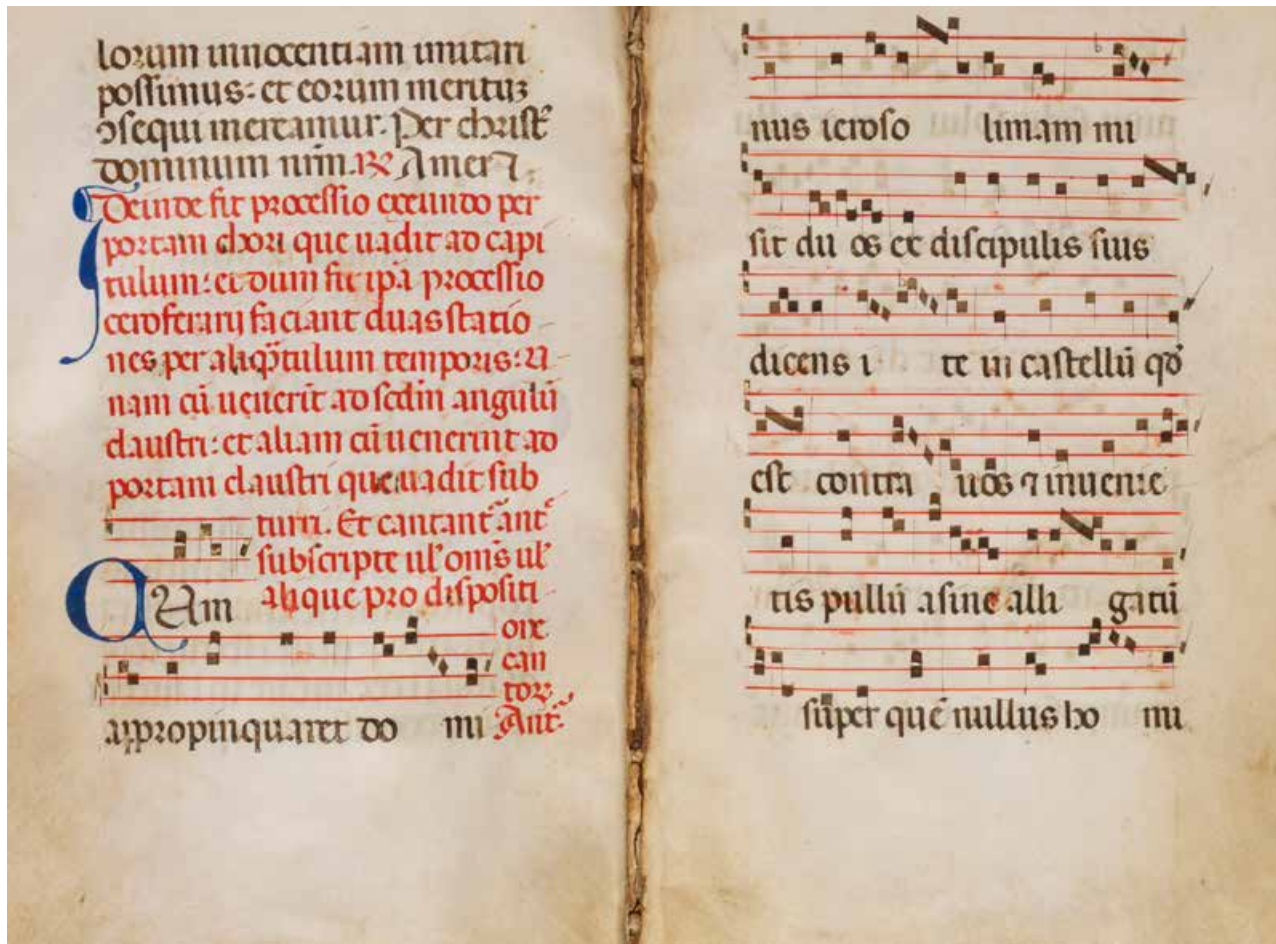 lorum innocentiam imitari
possimus: et eorum meritis
ꝯsequi mereamur. Per christ̃
dominum nrm̃. ℟ Amen ⁊.
Deinde fit processio exeundo per
portam chori que uadit ad capi
tulum: et dum fit ip̃a processio
ceroferarij faciant duas statio
nes per aliqͣ̃tulum temporis: U
nam cũ uenerit ad scd̃m angulũ
claustri: et aliam cũ uenerint ad
portam claustri que uadit sub
turri. Et cantant̃ ant̃
subscripte ul̃ om̃s ul̃
alique pro dispositi
one
can
tor̃.
CUm
appropinquaret do mi Ant̃.
nus ieroso limam mi
sit du os ex discipulis suis
dicens i te in castellũ qđ
est contra uos ⁊ inuenie
tis pullũ asine alli gatũ
sũper quẽ nullus ho mi